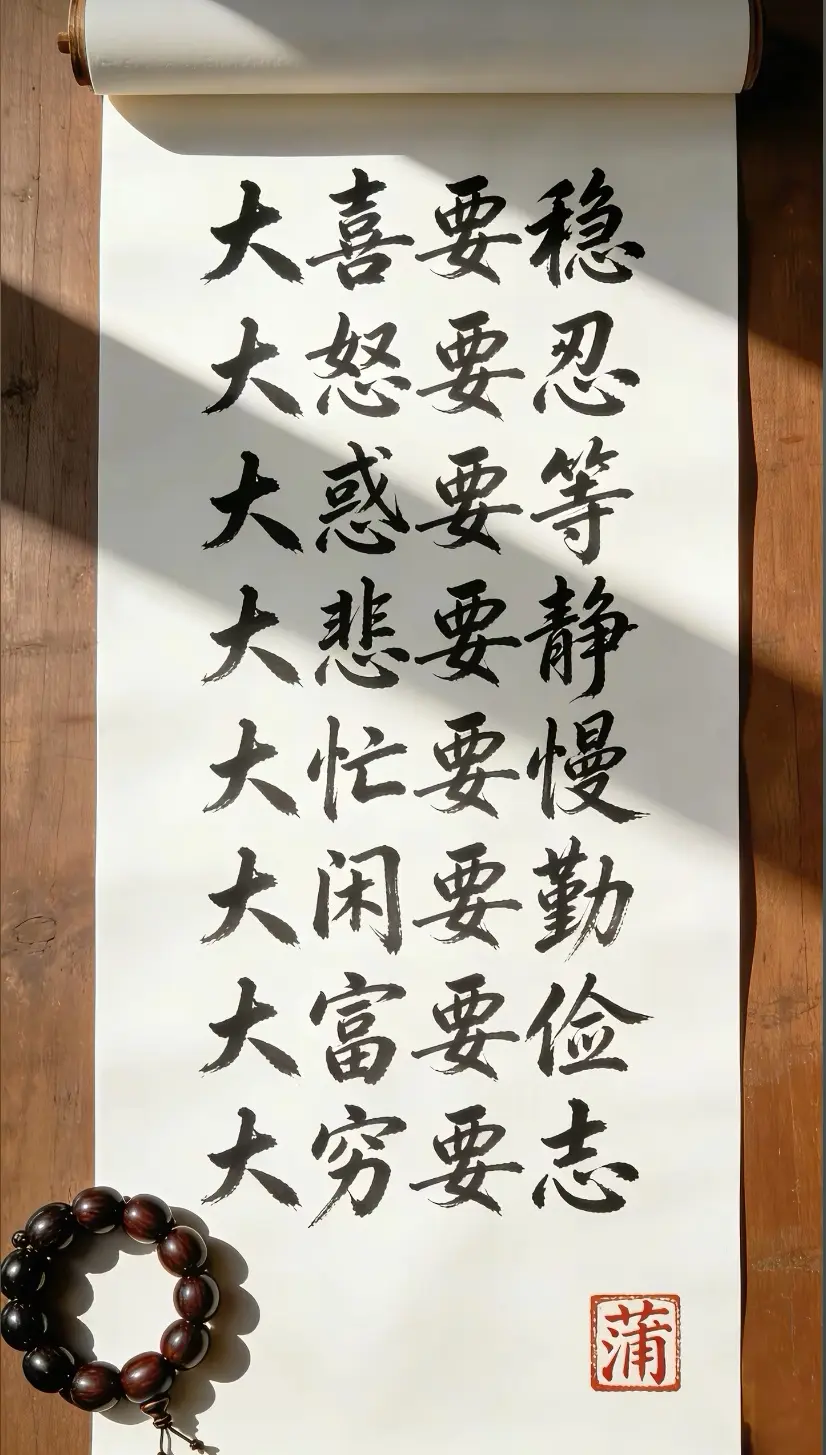 大喜要稳
大怒要忍
大惑要等
大悲要静
大忙要慢
大闲要勤
大富要俭
大穷要志
蒲